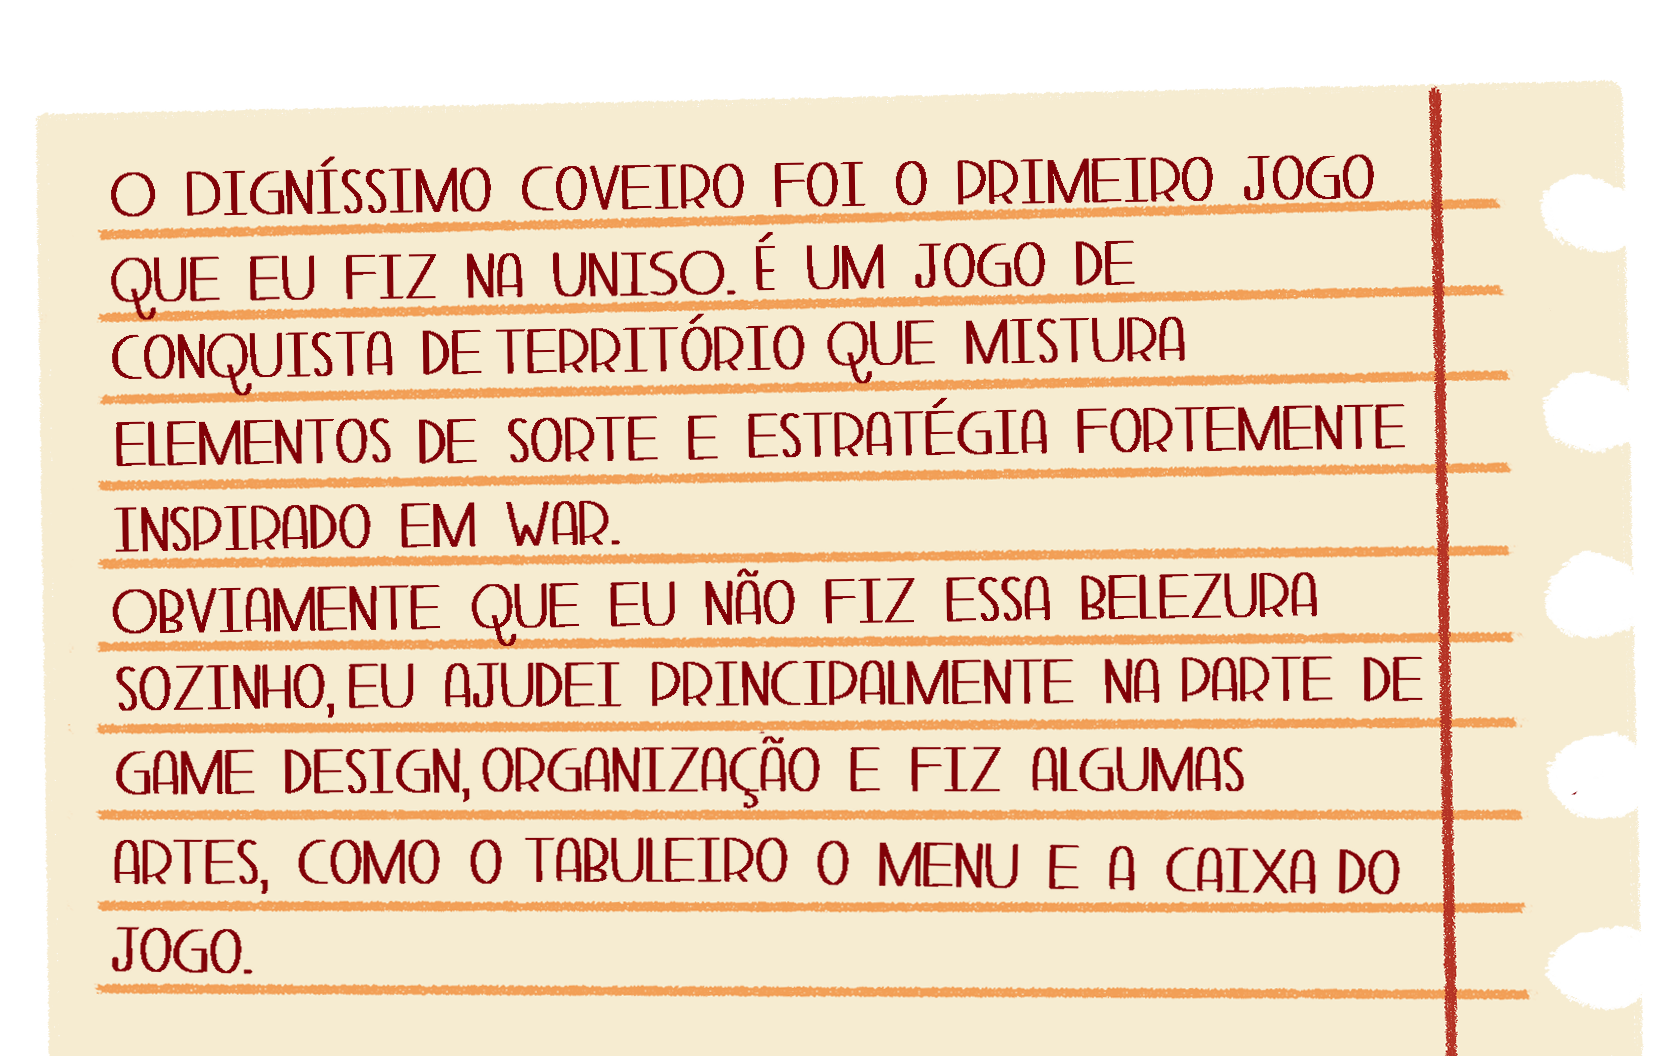 O DIGNÍSSIMO COVEIRO FOI O PRIMEIRO JOGO
QUE EU FIZ NA UNISO. É UM JOGO DE
CONQUISTA DE TERRITÓRIO QUE MISTURA
ELEMENTOS DE SORTE E ESTRATÉGIA FORTEMENTE
INSPIRADO EM WAR.
OBVIAMENTE QUE EU NÃO FIZ ESSA BELEZURA
SOZINHO, EU AJUDEI PRINCIPALMENTE NA PARTE DE
GAME DESIGN, ORGANIZAÇÃO E FIZ ALGUMAS
ARTES, COMO O TABULEIRO O MENU E A CAIXA DO
JOGO.